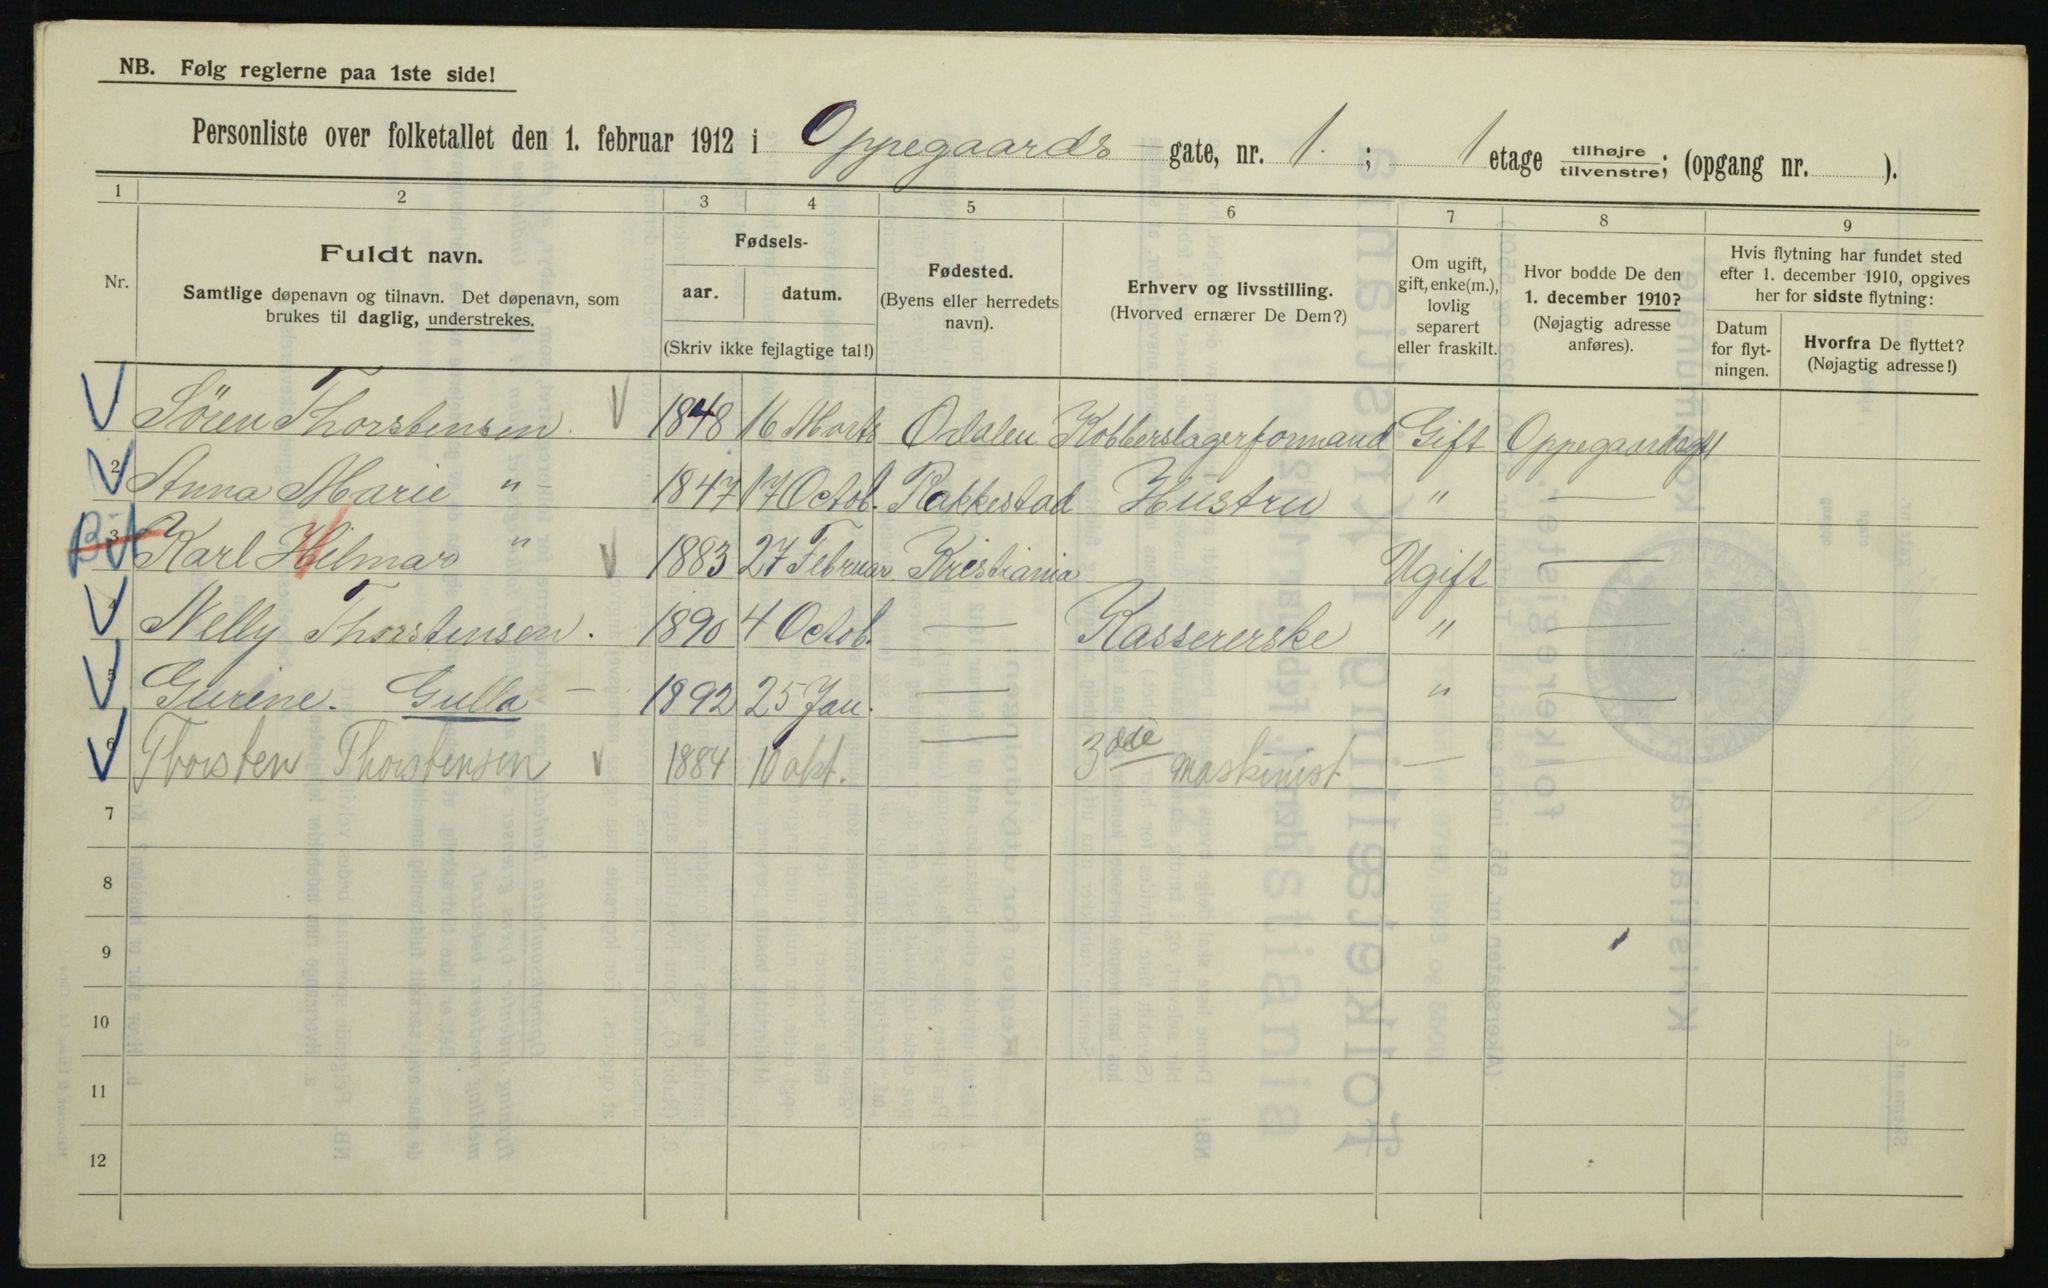 NB. Følg reglerne paa 1ste side!
Personliste over folketallet den 1. februar 1912 i Oppegaards-gate, nr. 1. ; 1 etage tilhøjre/tilvenstre; (opgang nr. ).
1 2 3 4 5 6 7 8 9
Nr.
Fuldt navn.
Samtlige døpenavn og tilnavn. Det døpenavn, som
brukes til daglig, understrekes.
Fødsels-
aar. datum.
(Skriv ikke fejlagtige tal!)
Fødested.
(Byens eller herredets
navn).
Erhverv og livsstilling.
(Hvorved ernærer De Dem?)
Om ugift,
gift, enke(m.),
lovlig
separert
eller fraskilt.
Hvor bodde De den
1. december 1910?
(Nøjagtig adresse
anføres).
Hvis flytning har fundet sted
efter 1. december 1910, opgives
her for sidste flytning:
Datum
for flyt-
ningen.
Hvorfra De flyttet?
(Nøjagtig adresse!)
Sören Thorstensen. 1848 16 Marts Odalen Kobberslagerformand Gift Oppegaardsgt 1
2 Anna Marie " 1847 17 Octob. Rakkestad Hustru " —
3 Karl Hilmar " 1883 27 Februar Kristiania Ugift —
4 Nelly Thorstensen. 1890 4 Octob. — Kassererske " —
5 Gurine. Gulla — 1892 25 Jan. — " —
6 Thorsten Thorstensen 1884 10 okt. — 3die maskinist — —
7
8
9
10
11
12